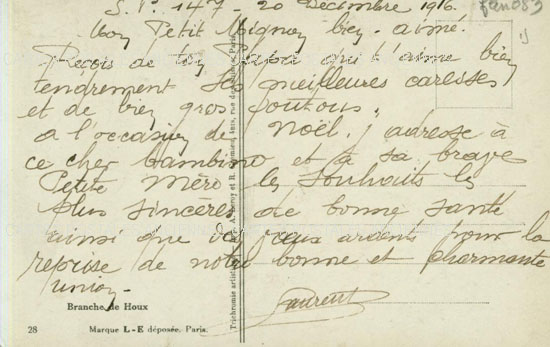 S.P. 147 - 20 Décembre 1916.
Mon Petit Mignon bien-aimé.
Reçois de ton Papa qui t'aime bien
tendrement les meilleures caresses
et de bien gros poutous.
A l'occasion de Noël, j'adresse à
ce cher bambino et à sa brave
Petite Mère les souhaits les
plus sincères de bonne santé
ainsi que vœux ardents pour la
reprise de notre bonne et charmante
union -
Laurent
Branche de Houx
28 Marque L-E déposée, Paris.